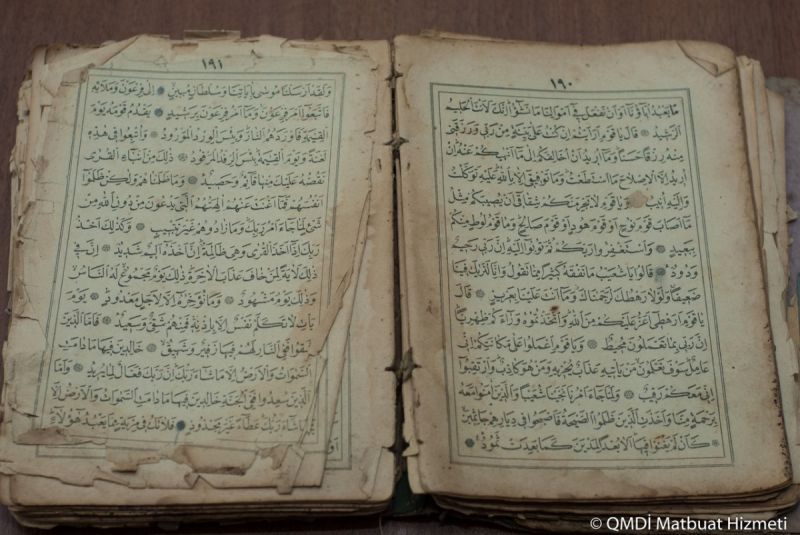 ١٩٠
مَا يَعْبُدُ اٰبَاؤُنَا اَوْ اَنْ نَفْعَلَ فٓى اَمْوَالِنَا مَا نَشٰٓؤُا اِنَّكَ لَاَنْتَ الْحَلٖيمُ
الرَّشٖيدُ قَالَ يَا قَوْمِ اَرَاَيْتُمْ اِنْ كُنْتُ عَلٰى بَيِّنَةٍ مِنْ رَبّٖى وَرَزَقَنٖى
مِنْهُ رِزْقًا حَسَنًا وَمَٓا اُرٖيدُ اَنْ اُخَالِفَكُمْ اِلٰى مَٓا اَنْهٰيكُمْ عَنْهُ اِنْ
اُرٖيدُ اِلَّا الْاِصْلَاحَ مَا اسْتَطَعْتُ وَمَا تَوْفٖيقٖٓى اِلَّا بِاللّٰهِ عَلَيْهِ تَوَكَّلْتُ
وَاِلَيْهِ اُنٖيبُ وَيَا قَوْمِ لَا يَجْرِمَنَّكُمْ شِقَاقٖٓى اَنْ يُصٖيبَكُمْ مِثْلُ
مَٓا اَصَابَ قَوْمَ نُوحٍ اَوْ قَوْمَ هُودٍ اَوْ قَوْمَ صَالِحٍ وَمَا قَوْمُ لُوطٍ مِنْكُمْ
بِبَعٖيدٍ وَاسْتَغْفِرُوا رَبَّكُمْ ثُمَّ تُوبُٓوا اِلَيْهِ اِنَّ رَبّٖى رَحٖيمٌ
وَدُودٌ قَالُوا يَا شُعَيْبُ مَا نَفْقَهُ كَثٖيرًا مِمَّا تَقُولُ وَاِنَّا لَنَرٰيكَ فٖينَا
ضَعٖيفًا وَلَوْلَا رَهْطُكَ لَرَجَمْنَاكَ وَمَٓا اَنْتَ عَلَيْنَا بِعَزٖيزٍ قَالَ
يَا قَوْمِ اَرَهْطٖٓى اَعَزُّ عَلَيْكُمْ مِنَ اللّٰهِ وَاتَّخَذْتُمُوهُ وَرَٓاءَكُمْ ظِهْرِيًّا
اِنَّ رَبّٖى بِمَا تَعْمَلُونَ مُحٖيطٌ وَيَا قَوْمِ اعْمَلُوا عَلٰى مَكَانَتِكُمْ اِنّٖى
عَامِلٌ سَوْفَ تَعْلَمُونَ مَنْ يَاْتٖيهِ عَذَابٌ يُخْزٖيهِ وَمَنْ هُوَ كَاذِبٌ وَارْتَقِبُٓوا
اِنّٖى مَعَكُمْ رَقٖيبٌ وَلَمَّا جَٓاءَ اَمْرُنَا نَجَّيْنَا شُعَيْبًا وَالَّذٖينَ اٰمَنُوا مَعَهُ
بِرَحْمَةٍ مِنَّا وَاَخَذَتِ الَّذٖينَ ظَلَمُوا الصَّيْحَةُ فَاَصْبَحُوا فٖى دِيَارِهِمْ جَاثِمٖينَ
كَاَنْ لَمْ يَغْنَوْا فٖيهَا اَلَا بُعْدًا لِمَدْيَنَ كَمَا بَعِدَتْ ثَمُودُ
١٩١
وَلَقَدْ اَرْسَلْنَا مُوسٰى بِاٰيَاتِنَا وَسُلْطَانٍ مُبٖينٍ اِلٰى فِرْعَوْنَ وَمَلَا۬ئِهٖ
فَاتَّبَعُٓوا اَمْرَ فِرْعَوْنَ وَمَٓا اَمْرُ فِرْعَوْنَ بِرَشٖيدٍ يَقْدُمُ قَوْمَهُ يَوْمَ
الْقِيٰمَةِ فَاَوْرَدَهُمُ النَّارَ وَبِئْسَ الْوِرْدُ الْمَوْرُودُ وَاُتْبِعُوا فٖى هٰذِهٖ
لَعْنَةً وَيَوْمَ الْقِيٰمَةِ بِئْسَ الرِّفْدُ الْمَرْفُودُ ذٰلِكَ مِنْ اَنْبَٓاءِ الْقُرٰى
نَقُصُّهُ عَلَيْكَ مِنْهَا قَٓائِمٌ وَحَصٖيدٌ وَمَا ظَلَمْنَاهُمْ وَلٰكِنْ ظَلَمُٓوا
اَنْفُسَهُمْ فَمَٓا اَغْنَتْ عَنْهُمْ اٰلِهَتُهُمُ الَّتٖى يَدْعُونَ مِنْ دُونِ اللّٰهِ مِنْ
شَيْءٍ لَمَّا جَٓاءَ اَمْرُ رَبِّكَ وَمَا زَادُوهُمْ غَيْرَ تَتْبٖيبٍ وَكَذٰلِكَ اَخْذُ
رَبِّكَ اِذَٓا اَخَذَ الْقُرٰى وَهِىَ ظَالِمَةٌ اِنَّ اَخْذَهُٓ اَلٖيمٌ شَدٖيدٌ اِنَّ فٖى
ذٰلِكَ لَاٰيَةً لِمَنْ خَافَ عَذَابَ الْاٰخِرَةِ ذٰلِكَ يَوْمٌ مَجْمُوعٌ لَهُ النَّاسُ
وَذٰلِكَ يَوْمٌ مَشْهُودٌ وَمَا نُؤَخِّرُهُٓ اِلَّا لِاَجَلٍ مَعْدُودٍ يَوْمَ
يَاْتِ لَا تَكَلَّمُ نَفْسٌ اِلَّا بِاِذْنِهٖ فَمِنْهُمْ شَقِىٌّ وَسَعٖيدٌ فَاَمَّا الَّذٖينَ
شَقُوا فَفِى النَّارِ لَهُمْ فٖيهَا زَفٖيرٌ وَشَهٖيقٌ خَالِدٖينَ فٖيهَا مَا دَامَتِ
السَّمٰوَاتُ وَالْاَرْضُ اِلَّا مَا شَٓاءَ رَبُّكَ اِنَّ رَبَّكَ فَعَّالٌ لِمَا يُرٖيدُ وَاَمَّا
الَّذٖينَ سُعِدُوا فَفِى الْجَنَّةِ خَالِدٖينَ فٖيهَا مَا دَامَتِ السَّمٰوَاتُ وَالْاَرْضُ اِلَّا
مَا شَٓاءَ رَبُّكَ عَطَٓاءً غَيْرَ مَجْذُوذٍ فَلَا تَكُ فٖى مِرْيَةٍ مِمَّا يَعْبُدُ هٰٓؤُلَٓاءِ
© QMDİ Matbuat Hizmeti